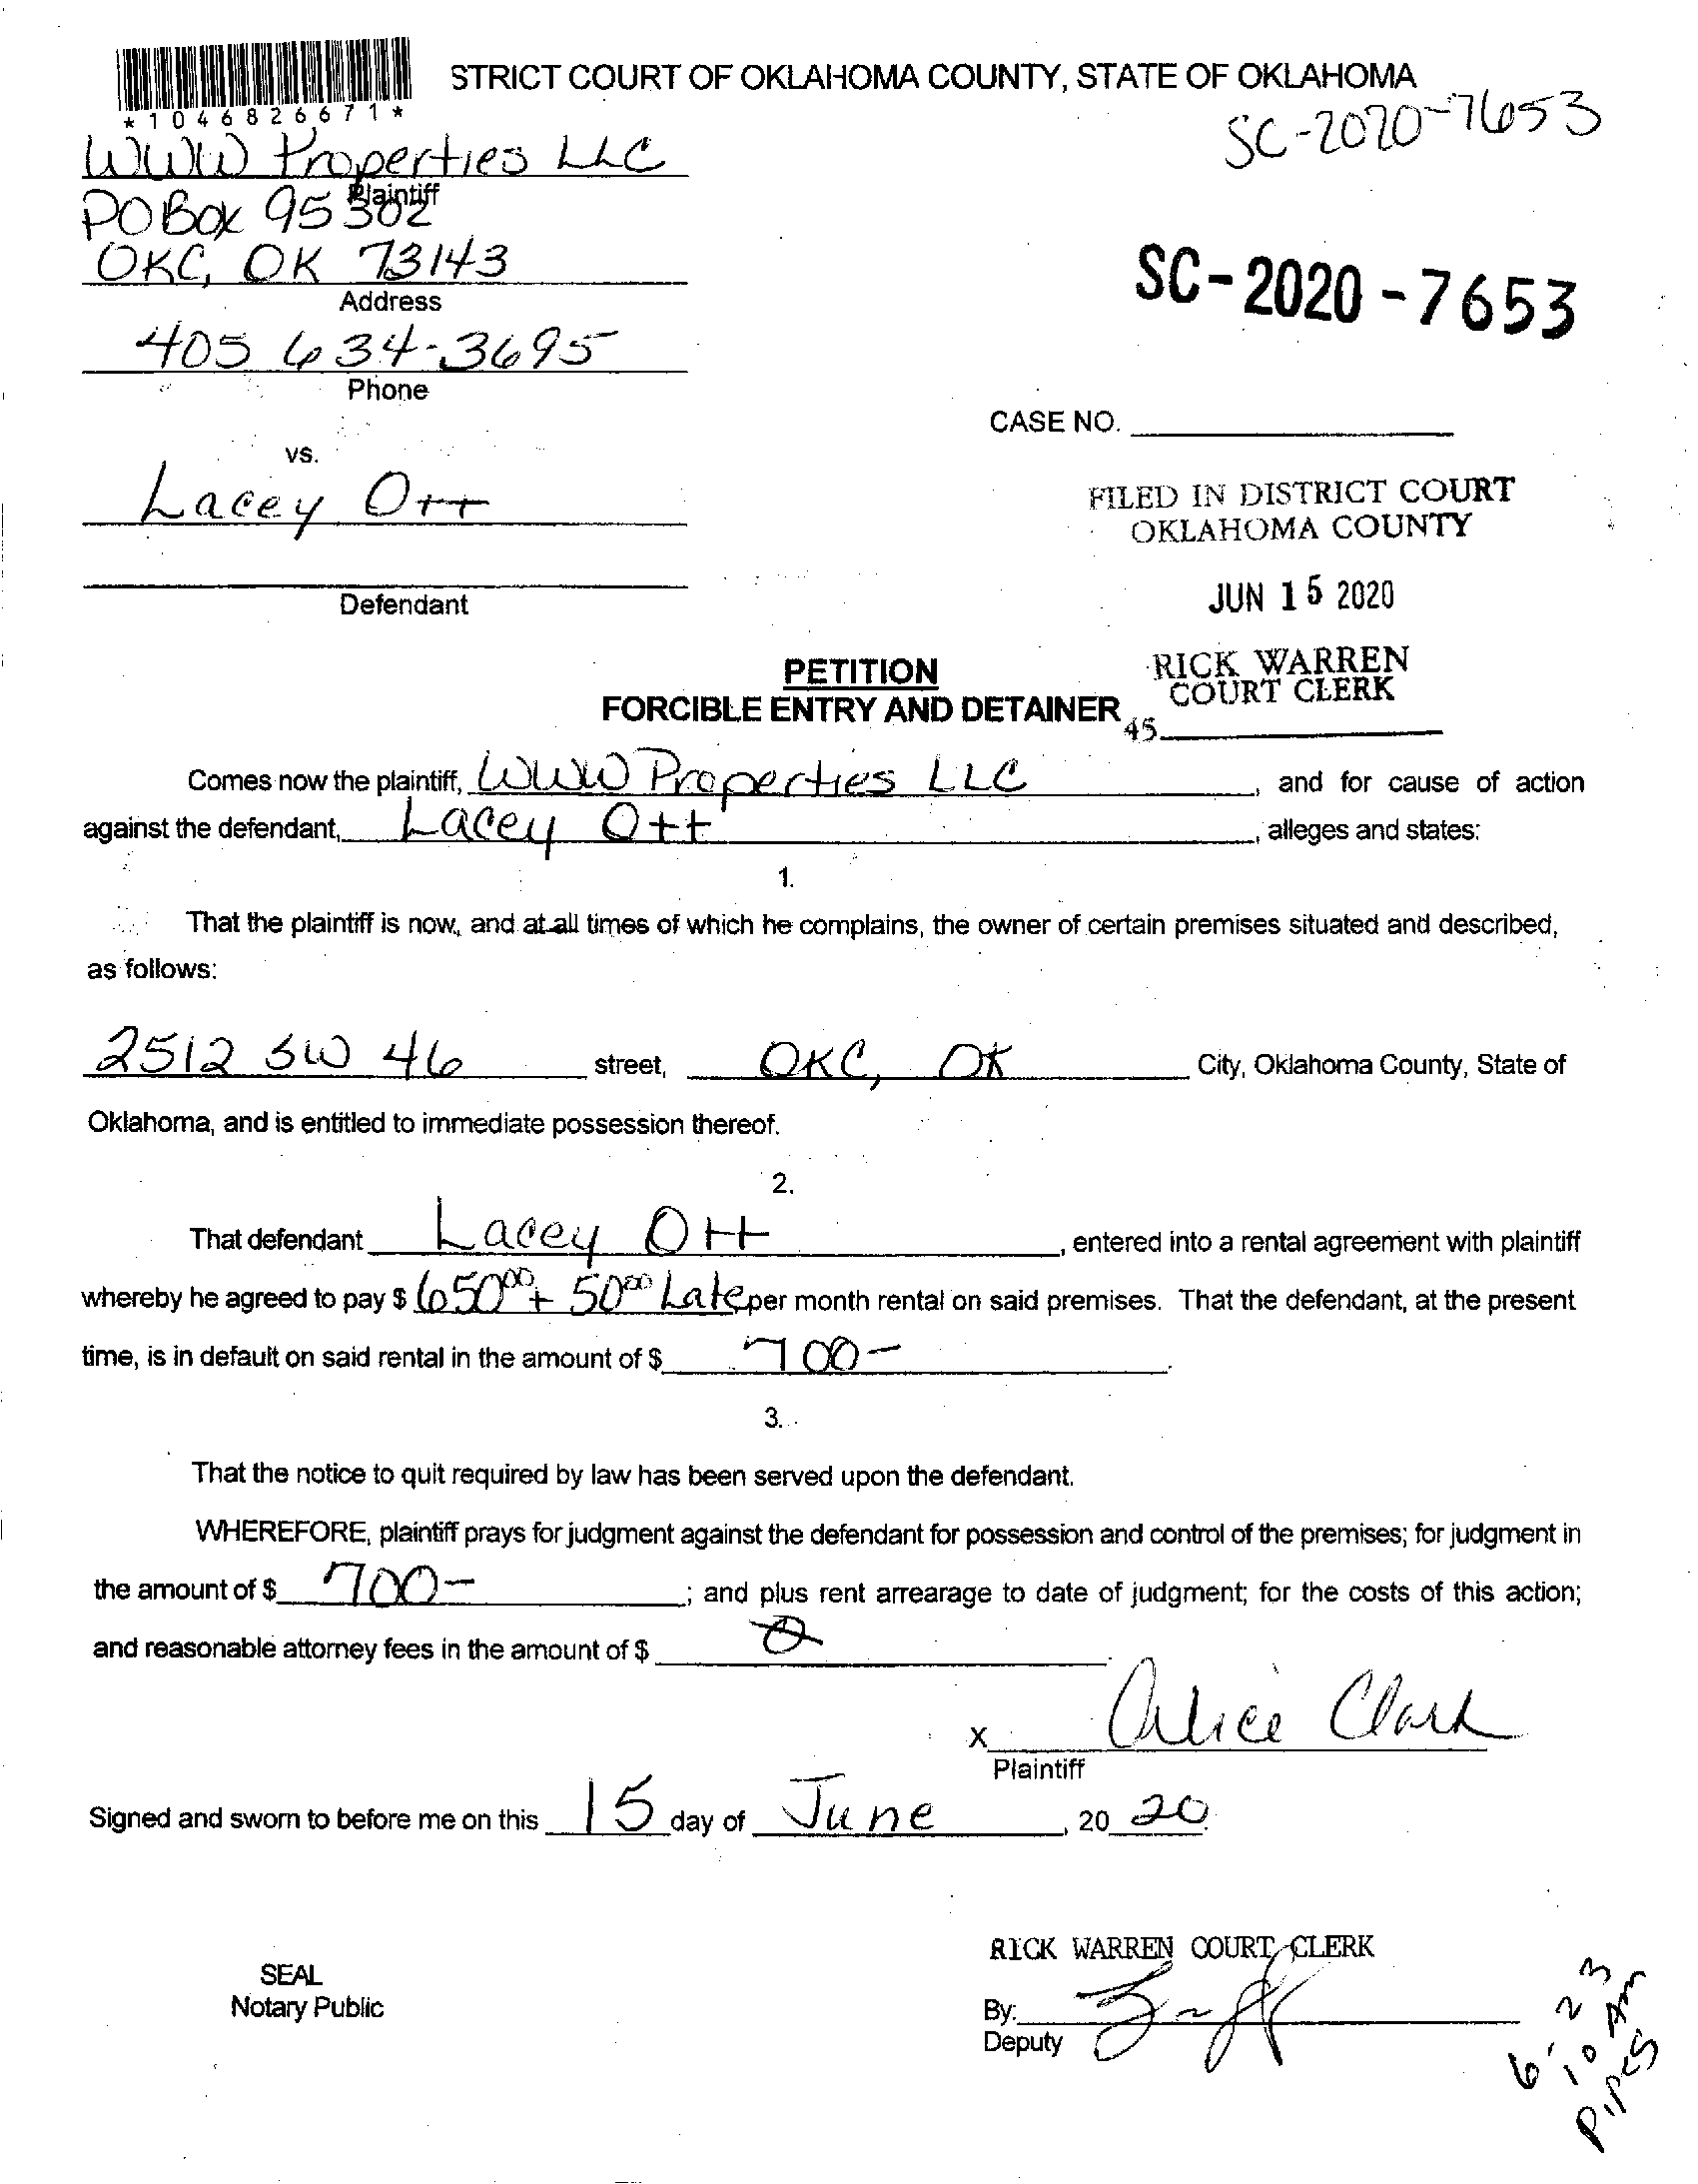 STRICT COURT OF OKLAHOMA COUNTY, STATE OF OKLAHOMA
*1046826671*
SC-2020-7653
WWW Properties LLC
Plaintiff
PO Box 95302
OKC, OK 73143
Address
SC-2020-7653
405 634-3695
Phone
CASE NO.
vs.
Lacey Ott
FILED IN DISTRICT COURT
OKLAHOMA COUNTY
Defendant
JUN 15 2020
PETITION
RICK WARREN
COURT CLERK
FORCIBLE ENTRY AND DETAINER
45
Comes now the plaintiff, WWW Properties LLC, and for cause of action
against the defendant, Lacey Ott, alleges and states:
1.
That the plaintiff is now, and at all times of which he complains, the owner of certain premises situated and described,
as follows:
2512 SW 46 street, OKC, OK City, Oklahoma County, State of
Oklahoma, and is entitled to immediate possession thereof.
2.
That defendant Lacey Ott, entered into a rental agreement with plaintiff
whereby he agreed to pay $ 650.00 + 50.00 Late per month rental on said premises. That the defendant, at the present
time, is in default on said rental in the amount of $ 700-.
3.
That the notice to quit required by law has been served upon the defendant.
WHEREFORE, plaintiff prays for judgment against the defendant for possession and control of the premises; for judgment in
the amount of $ 700-; and plus rent arrearage to date of judgment; for the costs of this action;
and reasonable attorney fees in the amount of $ 0.
x Alice Clark
Plaintiff
Signed and sworn to before me on this 15 day of June, 20 20.
RICK WARREN COURT CLERK
SEAL
Notary Public
By:
Deputy
6-23
10 Am